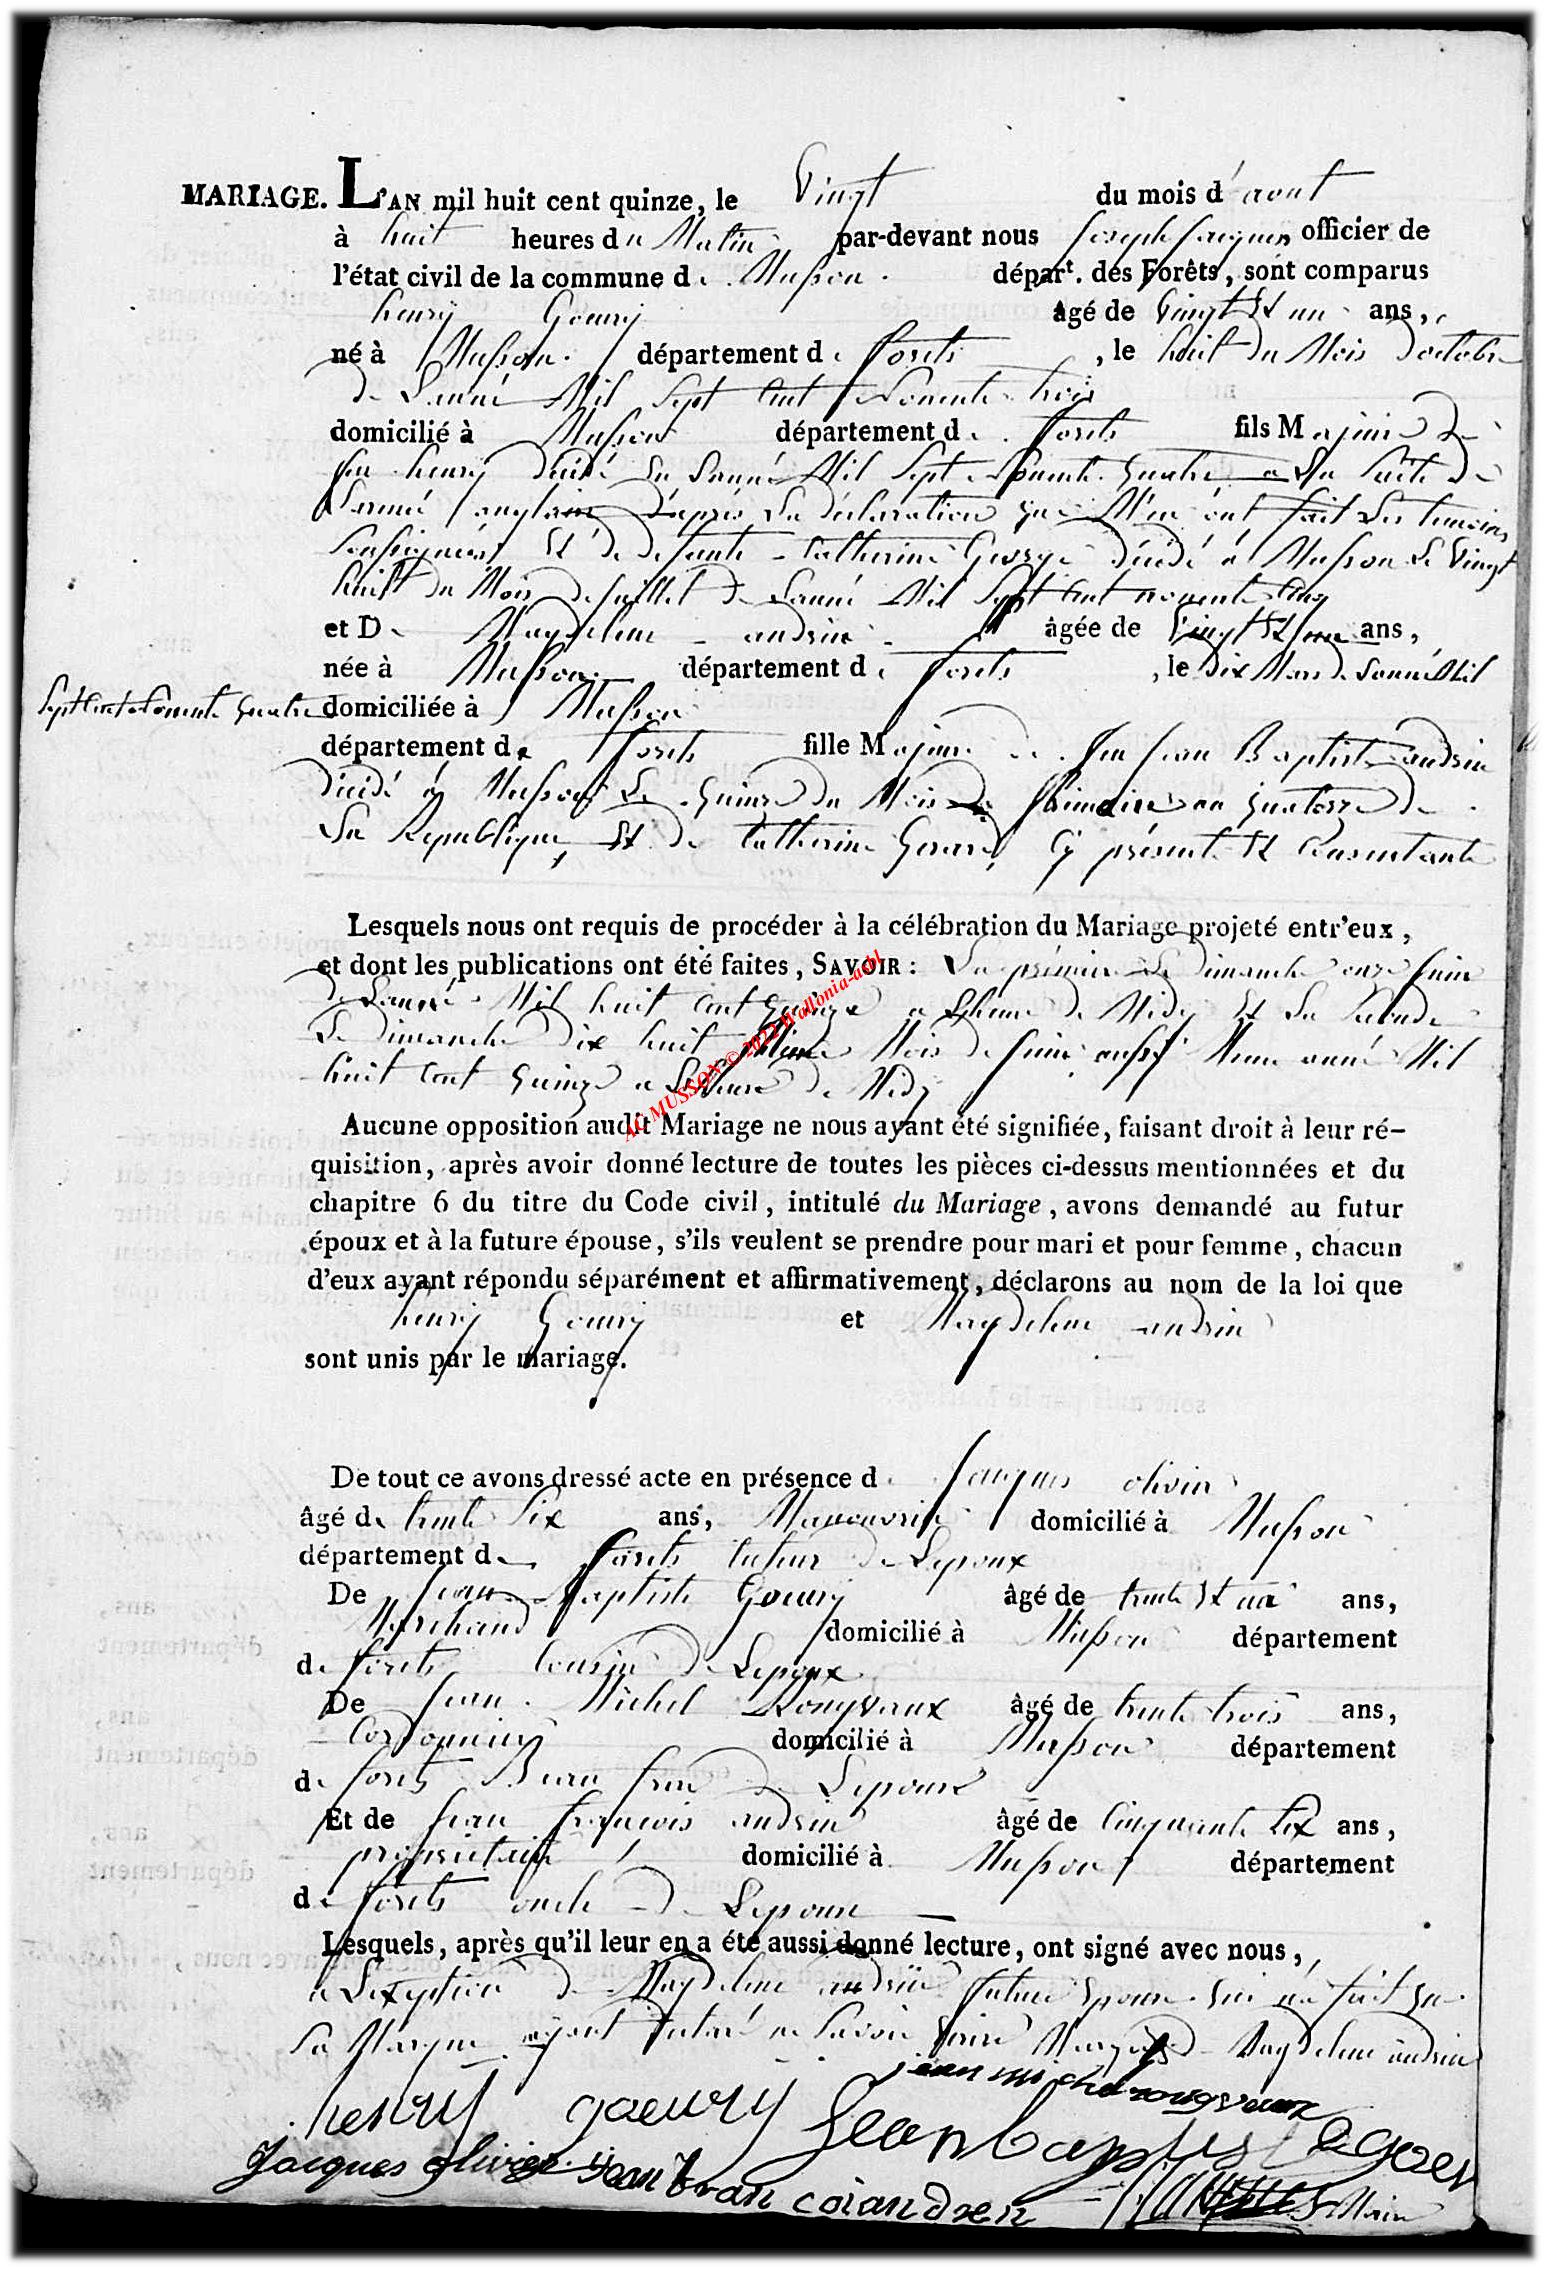 MARIAGE. L'AN mil huit cent quinze, le Vingt du mois d'aout
à huit heures du Matin par-devant nous joseph jacques officier de
l'état civil de la commune de Musson. départ. des Forêts, sont comparus
henry Goeury âgé de Vingt Et un ans,
né à Musson. département de forets, le huit du Mois d'octobre
de Lanné Mil Sept Cent Nonente trois
domicilié à Musson département de forets fils Majeur de
feu henry décédé En Lanné Mil Sept Nonente quatre a La Suite de
Larmé d'après La déclaration que M'en ont fait Les temoins
Soussignés Et de defunte Catherine George décédé à Musson Le Vingt
huit du Mois de juillet de Lanné Mil Sept Cent nonente Cinq
et De Magdelene andrin âgée de Vingt Et un ans,
née à Musson département de forets, le dix Mars de Lanné Mil
Sept Cent Nonente quatre domiciliée à Musson
département de forets fille Majeure de feu jean Baptiste andrin
décédé à Musson Le quinze du Mois de frimaire an quatorze de
La Republique, Et de Catherine Gerard, Cy présente Et Consentante
Lesquels nous ont requis de procéder à la célébration du Mariage projeté entr'eux,
et dont les publications ont été faites, SAVOIR : La première Le dimanche onze juin
de Lanné Mil huit Cent quinze a Lheure de Midy Et La Seconde
Le dimanche dix huit Même Mois de juin aussy Meme anné Mil
huit Cent quinze a Lheure de Midy
Aucune opposition audit Mariage ne nous ayant été signifiée, faisant droit à leur ré-
quisition, après avoir donné lecture de toutes les pièces ci-dessus mentionnées et du
chapitre 6 du titre du Code civil, intitulé du Mariage, avons demandé au futur
époux et à la future épouse, s'ils veulent se prendre pour mari et pour femme, chacun
d'eux ayant répondu séparément et affirmativement, déclarons au nom de la loi que
henry Goeury et Magdelene andrin
sont unis par le mariage.
De tout ce avons dressé acte en présence de jacques olivier
âgé de trente Six ans, Manouvrier domicilié à Musson
département de forets tuteur de Lepoux
De jean Baptiste Goeury âgé de trente Et un ans,
Marchand domicilié à Musson département
de forets Cousin de Lepoux
De jean Michel Rongvaux âgé de trente trois ans,
Cordonnier domicilié à Musson département
de forets Beau frere de Lepouse
Et de jean françois andrin âgé de Cinquante Six ans,
proprietaire domicilié à Musson département
de forets oncle de Lepouse
Lesquels, après qu'il leur en a été aussi donné lecture, ont signé avec nous,
a Lexeption de Magdelene andrin future Epouse qui na fait que
Sa Marque ayant declaré ne Savoir Ecrire Marque de Magdelene andrin
jean michel rongvaux
henry goeury jean baptiste goeu
jacques olivier jean francoi andren Maire
AC MUSSON © 2022 Wallonia-asbl